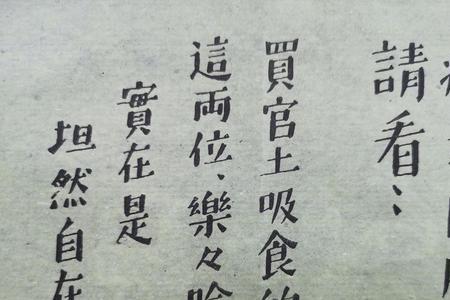 請看：
買官土吸食
這両位、樂々
實在是
坦然自在